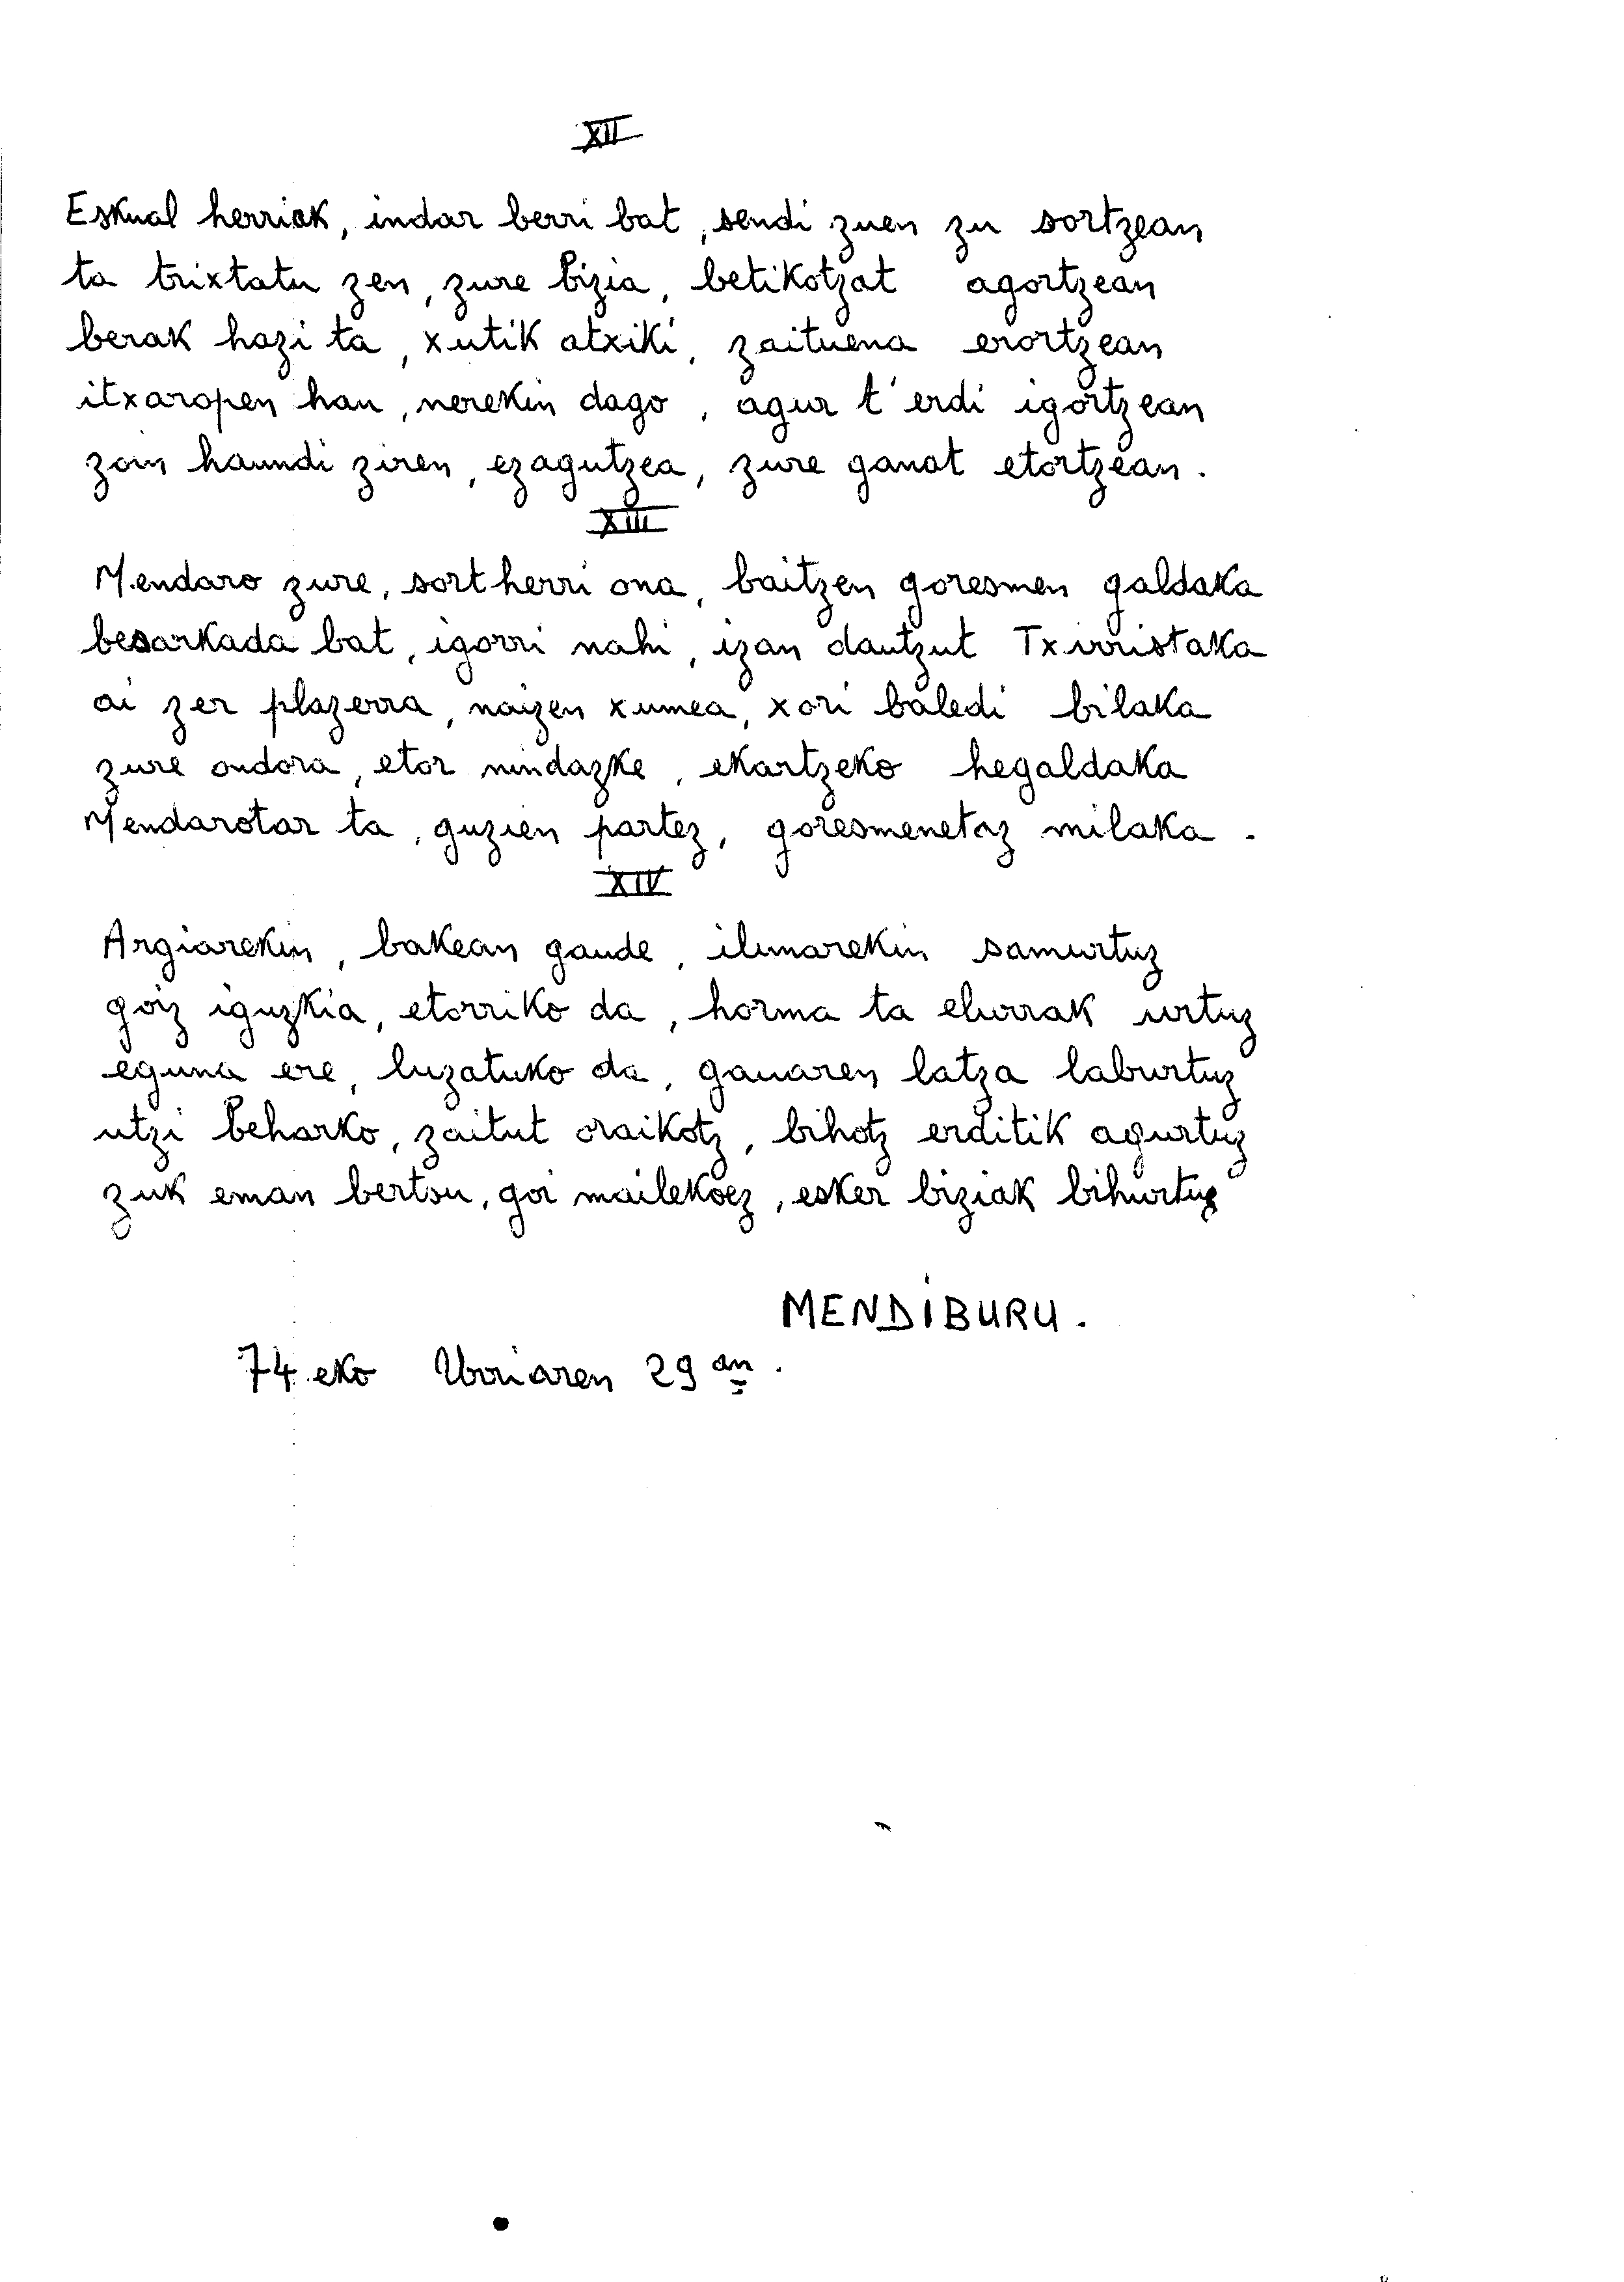 XII
Eskual herriak, indar berri bat, sendi zuen zu sortzean
ta trixtatu zen, zure bizia, betikotzat agortzean
berak hazi ta, xutik atxiki, zaituena erortzean
itxaropen hau, nerekin dago, agur t'erdi igortzean
zoin haundi ziren, ezagutzea, zure ganat etortzean.
XIII
Mendaro zure, sort herri ona, baitzen goresmen galdaka
besarkada bat, igorri nahi, izan dautzut Txirristaka
ai zer plazerra, naizen xumea, xori baledi bilaka
zure ondora, etor nindazke, ekartzeko hegaldaka
Mendarotar ta, guzien partez, goresmenetaz milaka.
XIV
Argiarekin, bakean gaude, ilunarekin samurtuz
goiz iguzkia, etorriko da, horma ta elurrak urtuz
eguna ere, luzatuko da, gauaren latza laburtuz
utzi beharko, zaitut oraikotz, bihotz erditik agurtuz
zuk eman bertsu, goi mailekoez, esker biziak bihurtuz
MENDIBURU.
74.eko Urriaren 29 an.